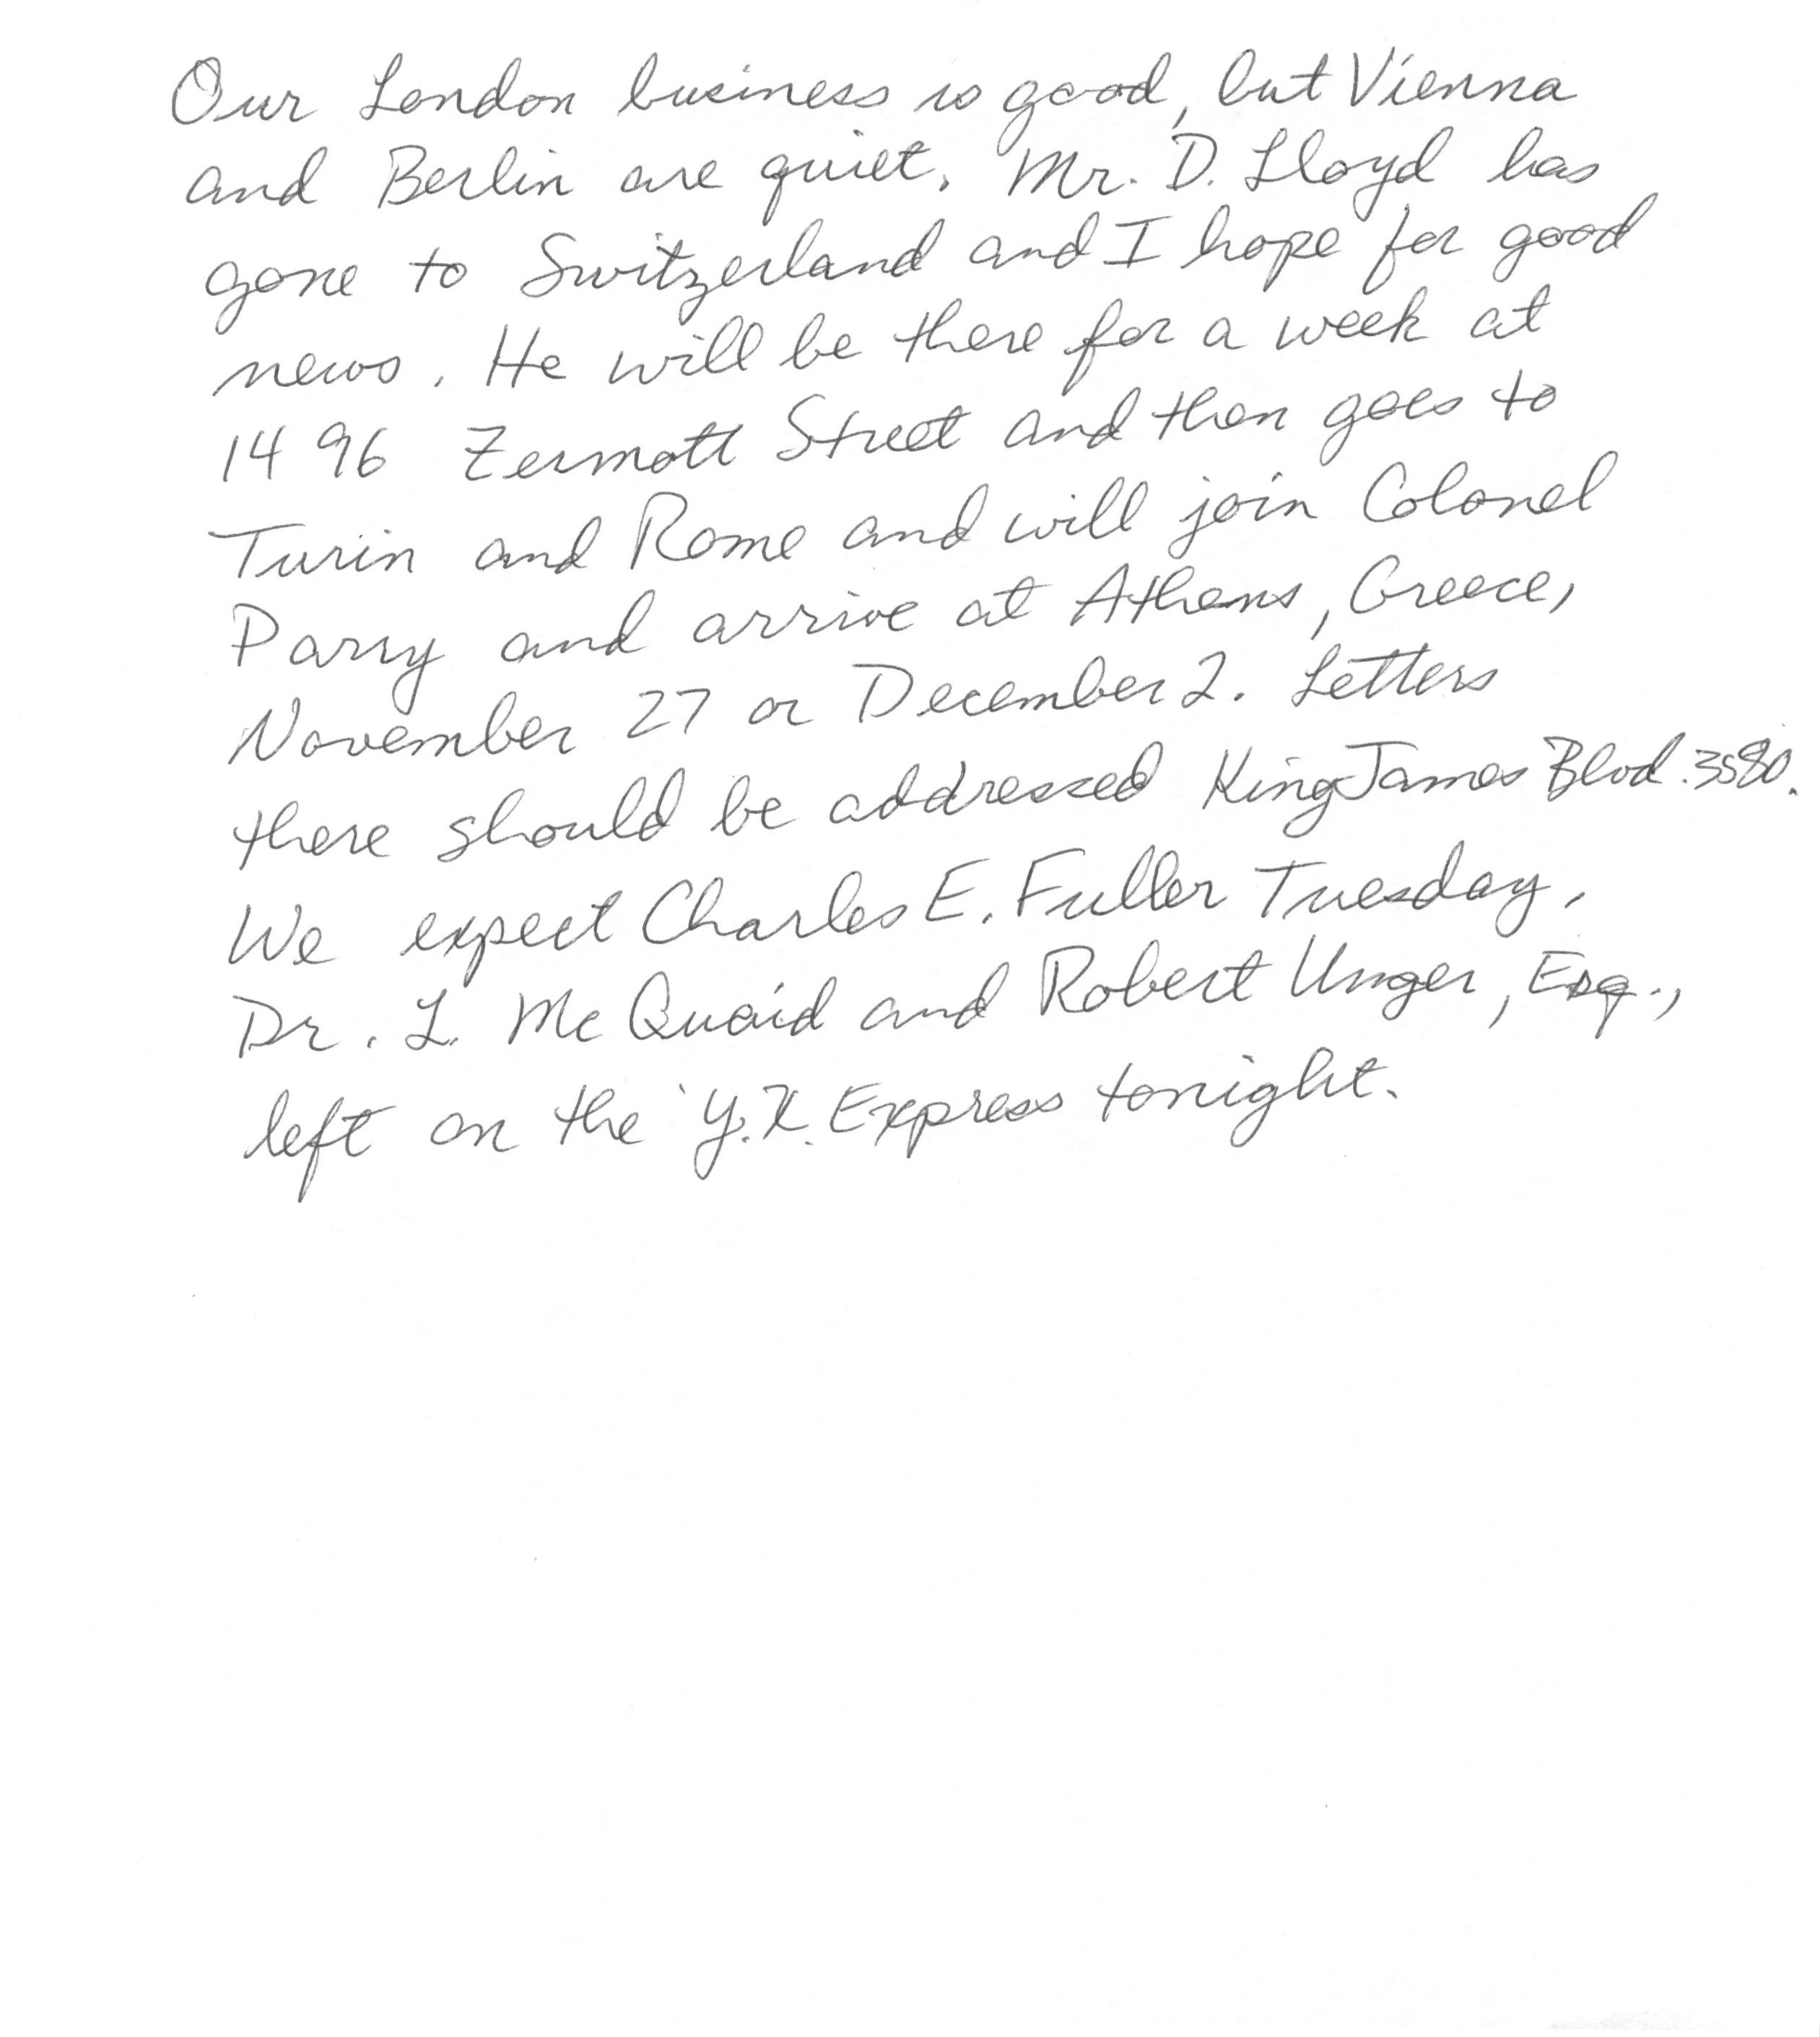 Our London business is good, but Vienna
and Berlin are quiet. Mr. D. Lloyd has
gone to Switzerland and I hope for good
news. He will be there for a week at
1496 Zermott Street and then goes to
Turin and Rome and will join Colonel
Parry and arrive at Athens, Greece,
November 27 or December 2. Letters
there should be addressed King James Blvd. 3580.
We expect Charles E. Fuller Tuesday.
Dr. L. McQuaid and Robert Unger, Esq.,
left on the Y.X. Express tonight.